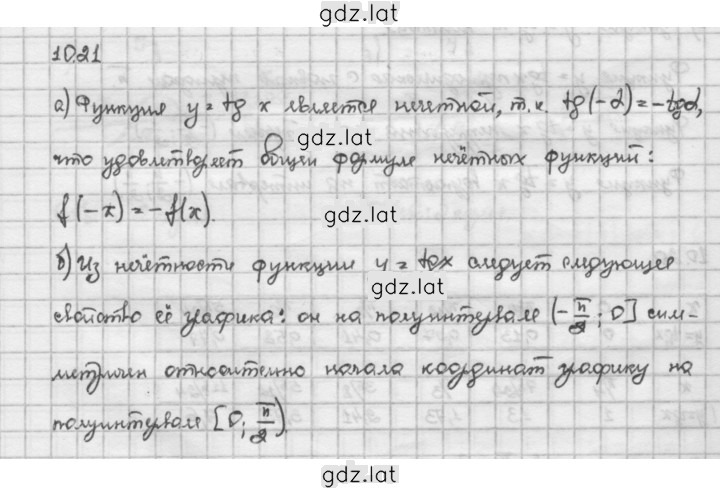 gdz.lat
10.21
а) Функция y = tg x является нечетной, т.к. tg(-α) = -tgα,
gdz.lat
что удовлетворяет общей формуле нечётных функций:
f(-x) = -f(x).
gdz.lat
б) Из нечётности функции y = tgx следует следующее
gdz.lat
свойство её графика: он на полуинтервале (-π/2; 0] сим-
метричен относительно начала координат графику на
полуинтервале [0; π/2).
gdz.lat